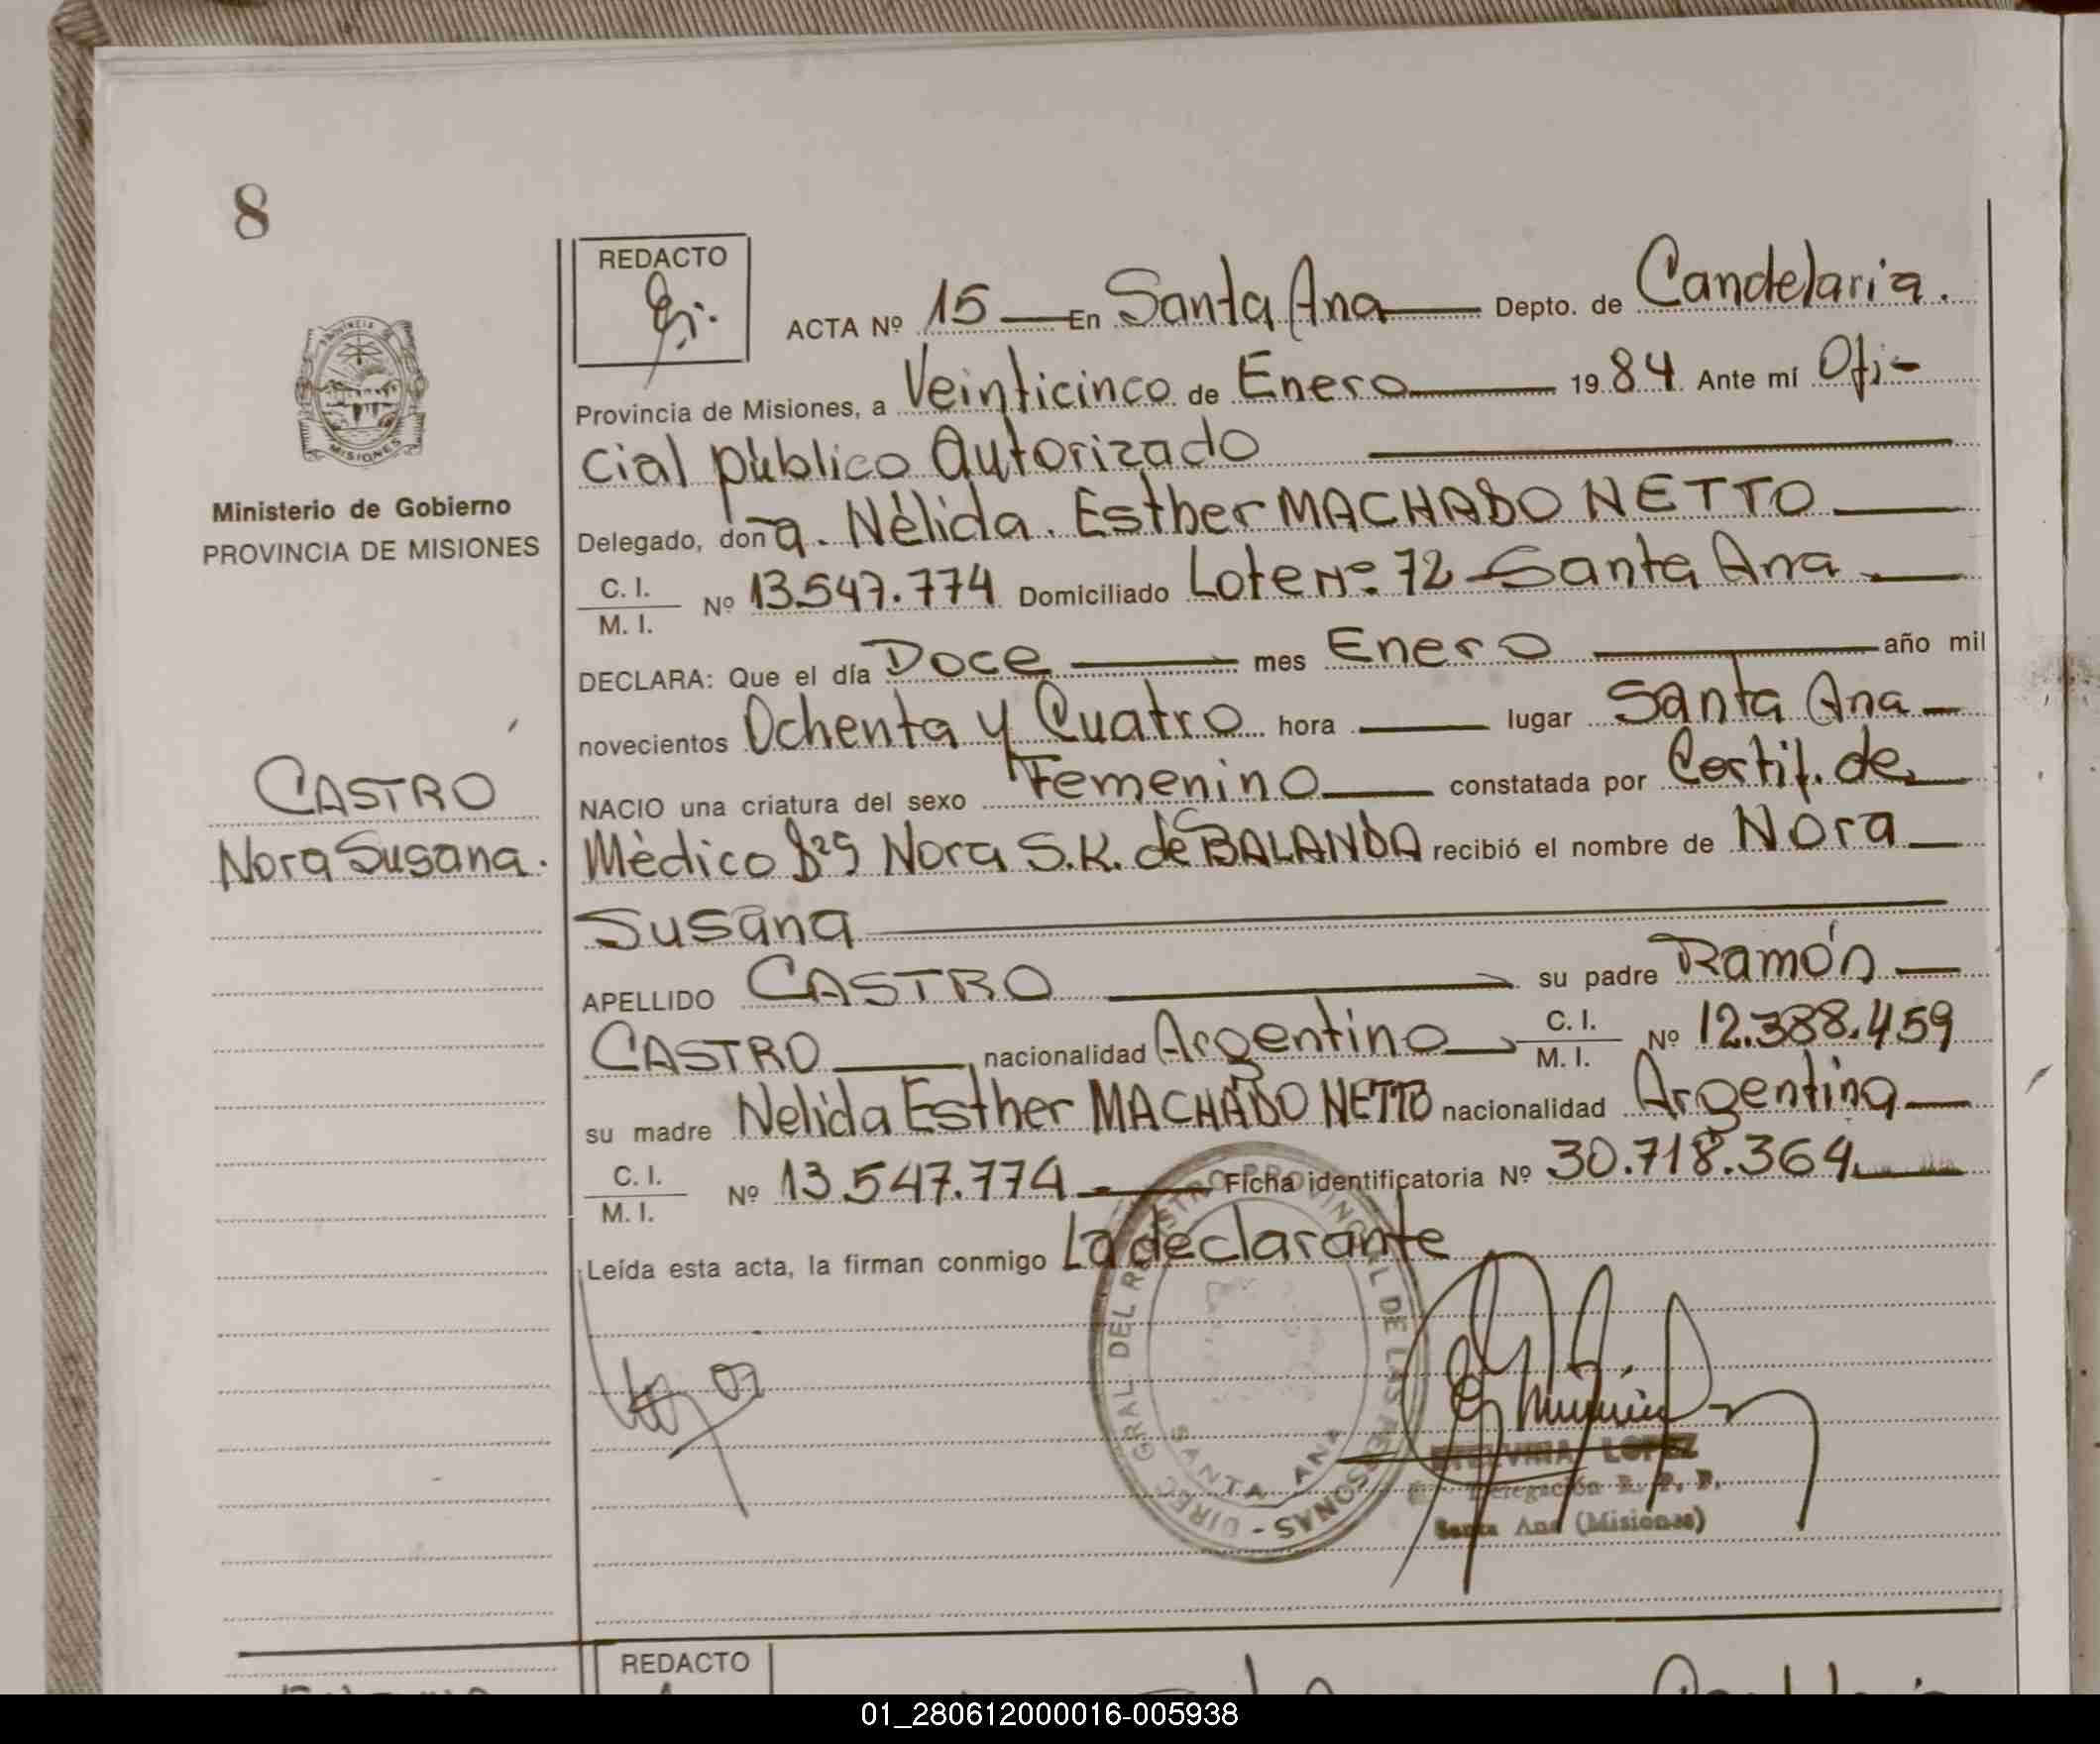 8
PROVINCIA DE MISIONES
Ministerio de Gobierno
PROVINCIA DE MISIONES
CASTRO
Nora Susana.
REDACTO
ACTA Nº 15 En Santa Ana Depto. de Candelaria.
Provincia de Misiones, a Veinticinco de Enero 1984 Ante mí Ofi-
cial pùblico Autorizado
Delegado, don a. Nèlida. Esther MACHADO NETTO
C. I.
M. I. Nº 13.547.774 Domiciliado Lote Nº. 72 - Santa Ana
DECLARA: Que el día Doce mes Enero año mil
novecientos Ochenta y Cuatro hora lugar Santa Ana
NACIO una criatura del sexo Femenino constatada por Certif. de
Mèdico Nora S.K. de BALANDA recibió el nombre de Nora
Susana
APELLIDO CASTRO su padre Ramón
CASTRO nacionalidad Argentino C. I.
M. I. Nº 12.388.459
su madre Nelida Esther MACHADO NETTO nacionalidad Argentina
C. I.
M. I. Nº 13.547.774 Ficha identificatoria Nº 30.718.364
Leída esta acta, la firman conmigo La declarante
DIREC GRAL DEL REGISTRO PROVINCIAL DE LAS PERSONAS -
SANTA ANA
ETELVINA LOPEZ
Delegación R. P. P.
Santa Ana (Misiones)
REDACTO
01_280612000016-005938